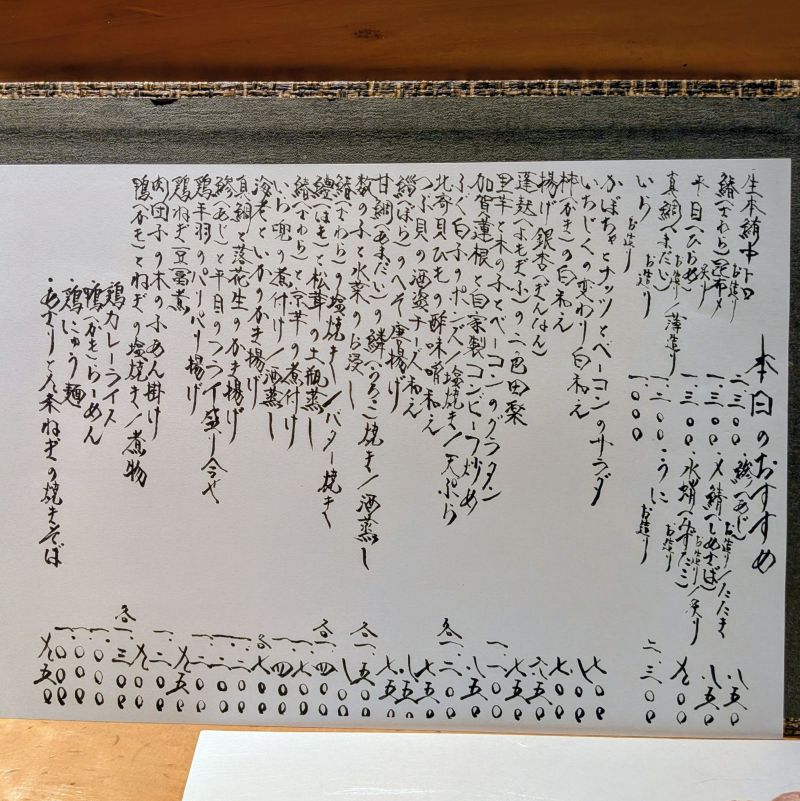 本日のおすすめ
生本鮪中トロ お造り 二.三〇〇
鰆(さわら)昆布〆 お造り/炙り 一.三〇〇
平目(ひらめ) お造り/薄造り 一.三〇〇
真鯛(まだい) お造り 一.二〇〇
いくら お造り 一.〇〇〇
・鯵(あじ) お造り/たたき 八五〇
・〆鯖(しめさば) お造り/炙り 八五〇
・水蛸(みずたこ) お造り 九〇〇
・うに お造り 二.三〇〇
かぼちゃとナッツとベーコンのサラダ 七〇〇
いちじくの変わり白和え 八〇〇
柿(かき)の白和え 七〇〇
揚げ銀杏(ぎんなん) 六五〇
蓬麩(よもぎふ)の二色田楽 七五〇
里芋と木の子とベーコンのグラタン 一.一〇〇
加賀蓮根と自家製コンビーフ炒め 八五〇
ふぐ白子のポン酢/塩焼き/天ぷら 各一.二〇〇
北寄貝ひもの酢味噌和え 七五〇
つぶ貝の酒盗チーズ和え 八五〇
鯔(ぼら)のへそ唐揚げ 七五〇
甘鯛(あまだい)の鱗(うろこ)焼き/酒蒸し 各一.五〇〇
数の子と水菜のお浸し 八〇〇
鰆(さわら)の塩焼き/バター焼き 各一.四〇〇
鱧(はも)と松茸の土瓶蒸し 一.七〇〇
鰆(さわら)と京芋の煮付け 一.四〇〇
いくら
海老といかのかき揚げ
真鯛と落花生のかき揚げ 一.二〇〇
鯵(あじ)と平目のフライ盛り合せ 一.二〇〇
鶏手羽のパリパリ揚げ
鶏ねぎ豆冨煮 九五〇
肉団子の木の子あん掛け 一.二〇〇
鴨(かも)とねぎの塩焼き/煮物 各一.三〇〇
・鶏カレーライス 一.〇〇〇
・鴨(かも)らーめん 一.〇〇〇
・鶏にゅう麺 一.〇〇〇
・あさりと九条ねぎの焼きそば 九五〇